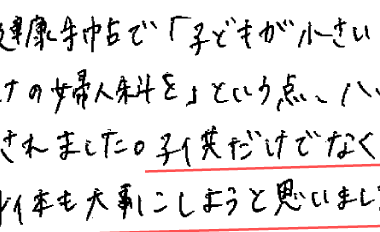 健康手帖で「子どもが小さい
けの婦人科を」という点、ハ
されました。子供だけでなく
体も大事にしようと思いまし